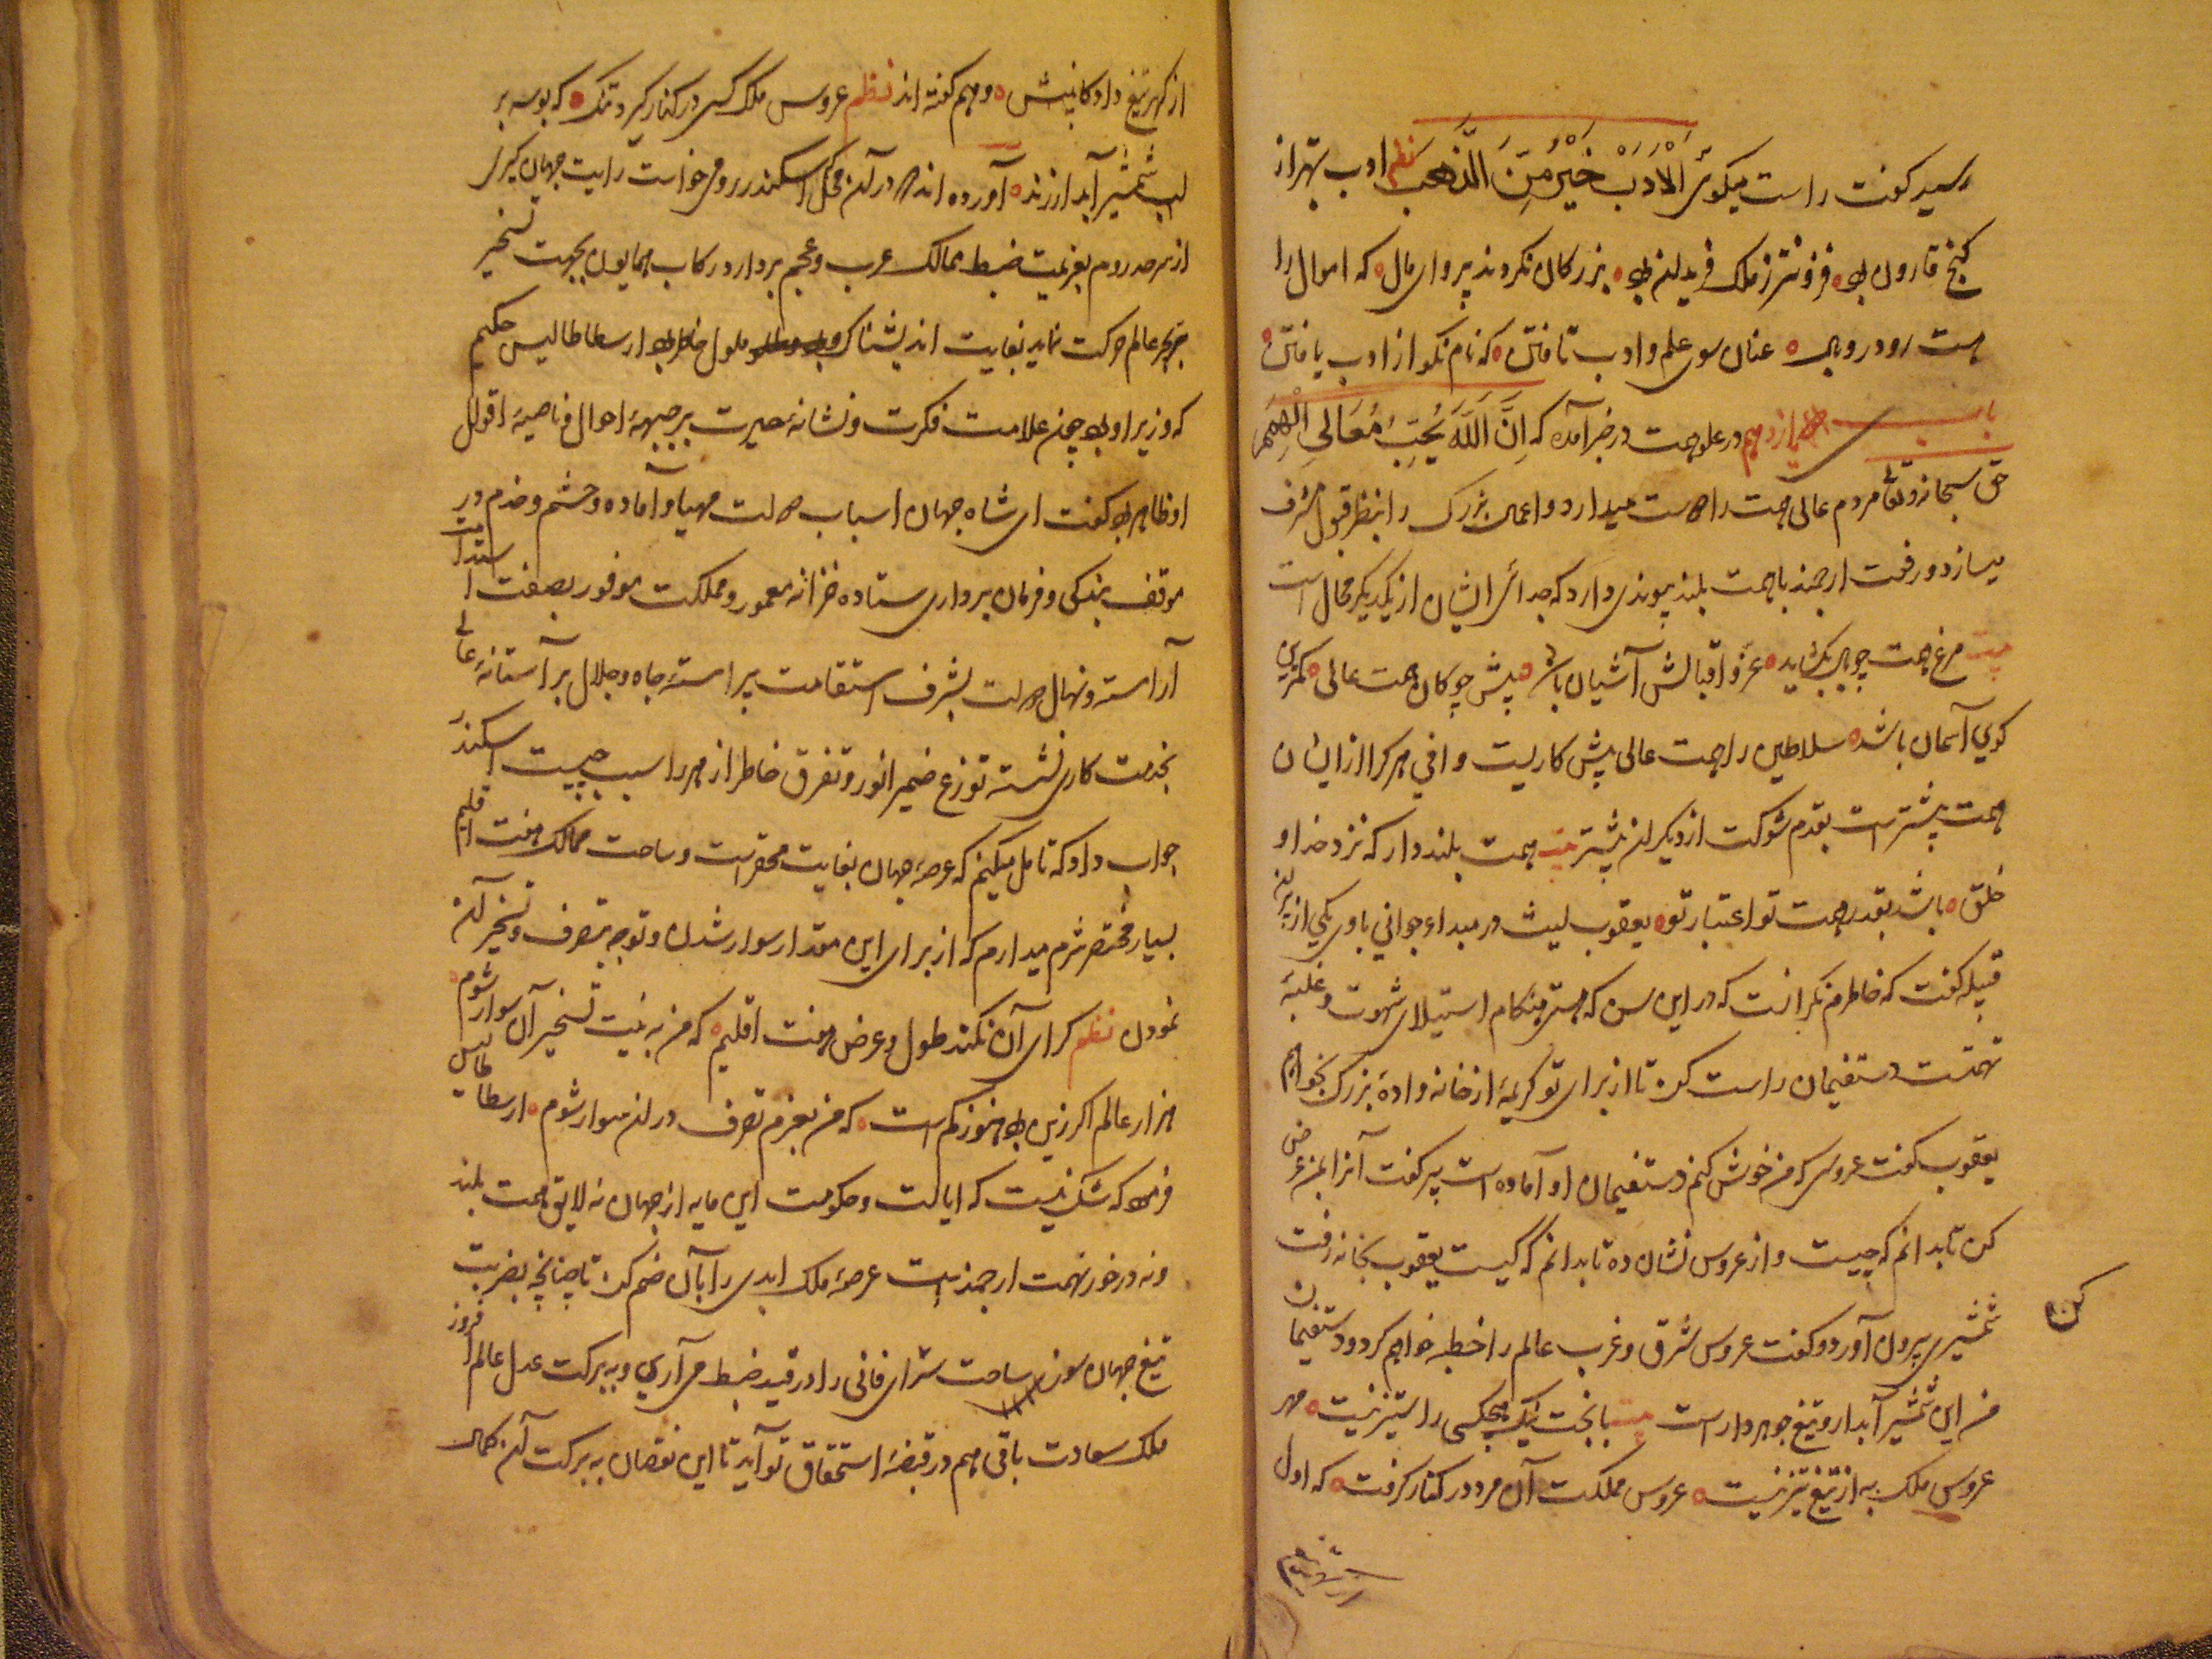 رسید گفت راست میگوئی اَلْاَدَبُ خَیْرٌ مِنَ الذَّهَب نظم ادب بهتر از
گنج قارون بود فزونتر ز ملک فریدون بود بزرگان نکردند پروای مال که اموال را
هست رو در زوال عنان سوی علم و ادب تافتن که نام نکو از ادب یافتن
باب یازدهم در علو همت در خبر آمده که اِنَّ اللّٰهَ یُحِبُّ مَعَالِیَ الْهِمَمِ
حق سبحانه و تعالی مردم عالی همت را دوست میدارد و اعمال بزرگ را بنظر قبول مشرف
میسازد و رفعت ارجمند با همت بلند پیوندی دارد که جدائی ایشان از یکدیگر محال است
بیت مرغ همت چو بال بگشاید عز و اقبالش آشیان باشد پیش چوکان همت عالی کمترین
گوی آسمان باشد سلاطین را همت عالی پیش کاریست وافی هر کرا از ایشان
همت بیشتر است بقدم شوکت از دیگران پیشتر بیت همت بلند دار که نزد خدا و
خلق باشد بقدر همت تو اعتبار تو یعقوب لیث در مبداء جوانی با وی یکی از پیران
قبیله گفت که خاطرم نگرانست که در این سن که هستی هنگام استیلای شهوت و غلبهٔ
نهمتست دستفیمان راست کن تا از برای تو کریمهٔ از خانه وادهٔ بزرگ بخواهم
یعقوب گفت عروسی که من خوش کنم دستفیمان او آماده است پیر گفت آنرا بمن عرض
کن تا بدانم که چیست و از عروس نشان ده تا بدانم که کیست یعقوب بخانه رفت
کن
شمشیری بیرون آورد و گفت عروس شرق و غرب عالم را خطبه خواهم کرد و دستفیمان
من این شمشیر آبدار و تیغ جوهردار است بیت با بخت نیک هیچکسی را ستیز نیست مهر
عروس ملک به از تیغ تیز نیست عروس مملکت آن مرد در کنار گرفت که اول
از گهر تیغ داد کابینش و هم گفته اند نظم عروس ملک کسی در کنار گیرد تنگ که بوسه بر
لب شمشیر آبدار زند آورده اند که در آن محل که اسکندر رومی خواست رایت جهان گیری
از سر حد روم بعزیمت ضبط ممالک عرب و عجم بردارد و رکاب همایون بجهت تسخیر
بر و بحر عالم حرکت نماید بغایت اندیشناک و ملول خاطر بود ارسطاطالیس حکیم
که وزیر او بود چون علامت فکرت و نشانهٔ حیرت بر جبههٔ احوال و ناصیهٔ اقوال
او ظاهر بود گفت ای شاه جهان اسباب دولت مهیا و آماده و حشم و خدم در
موقف بندکی و فرمان برداری ستاده خزانه معمور و مملکت موفور بصفت استدامت
آراسته و نهال دولت بشرف استقامت پیراسته جاه و جلال بر آستانهٔ عالی
بخدمت کاری نشسته توزع ضمیر انور و تفرق خاطر ازهر را سبب چیست اسکندر
جواب داد که تامل میکنم که عرصهٔ جهان بغایت محقر است و ساحت ممالک هفت اقلیم
بسیار مختصر شرم میدارم که از برای این مقدار سوار شدن و توجه بتصرف و تسخیر آن
نمودن نظم کرای آن نکند طول و عرض هفت اقلیم که من به نیت تسخیر آن سوار شوم
هزار عالم اگر زین بود هنوز کم است که من بعزم تصرف در آن سوار شوم ارسطاطالیس
فرمود که شک نیست که ایالت و حکومت این مایه از جهان نه لایق همت بلند
و نه در خور نهمت ارجمند است عرصهٔ ملک ابدی را با آن ضم کن تا چنانچه بضربت
تیغ جهان سوز ساحت سرای فانی را در قید ضبط می آری و به برکت عدل عالم افروز
ملک سعادت باقی هم در قبضهٔ استحقاق تو آید تا این نقصان به برکت آن کمال